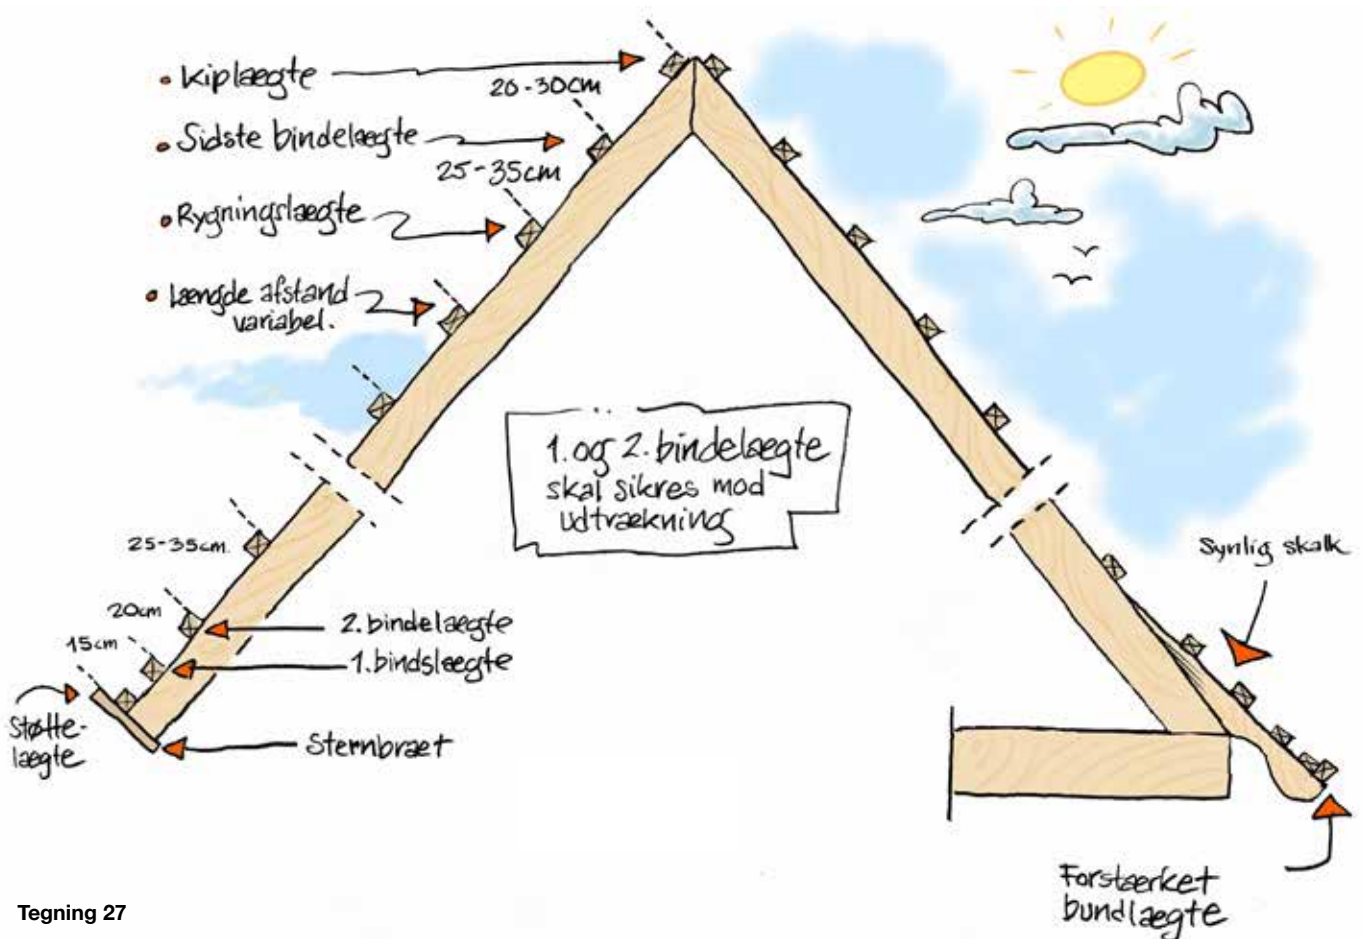 Kiplægte
20-30cm
Sidste bindelægte
25-35cm
Rygningslægte
Længde afstand
variabel.
1. og 2. bindelægte
skal sikres mod
udtrækning
25-35cm.
20cm
15cm
2. bindelægte
1. bindslægte
Støtte-
lægte
Sternbræt
Synlig skalk
Forstærket
bundlægte
Tegning 27